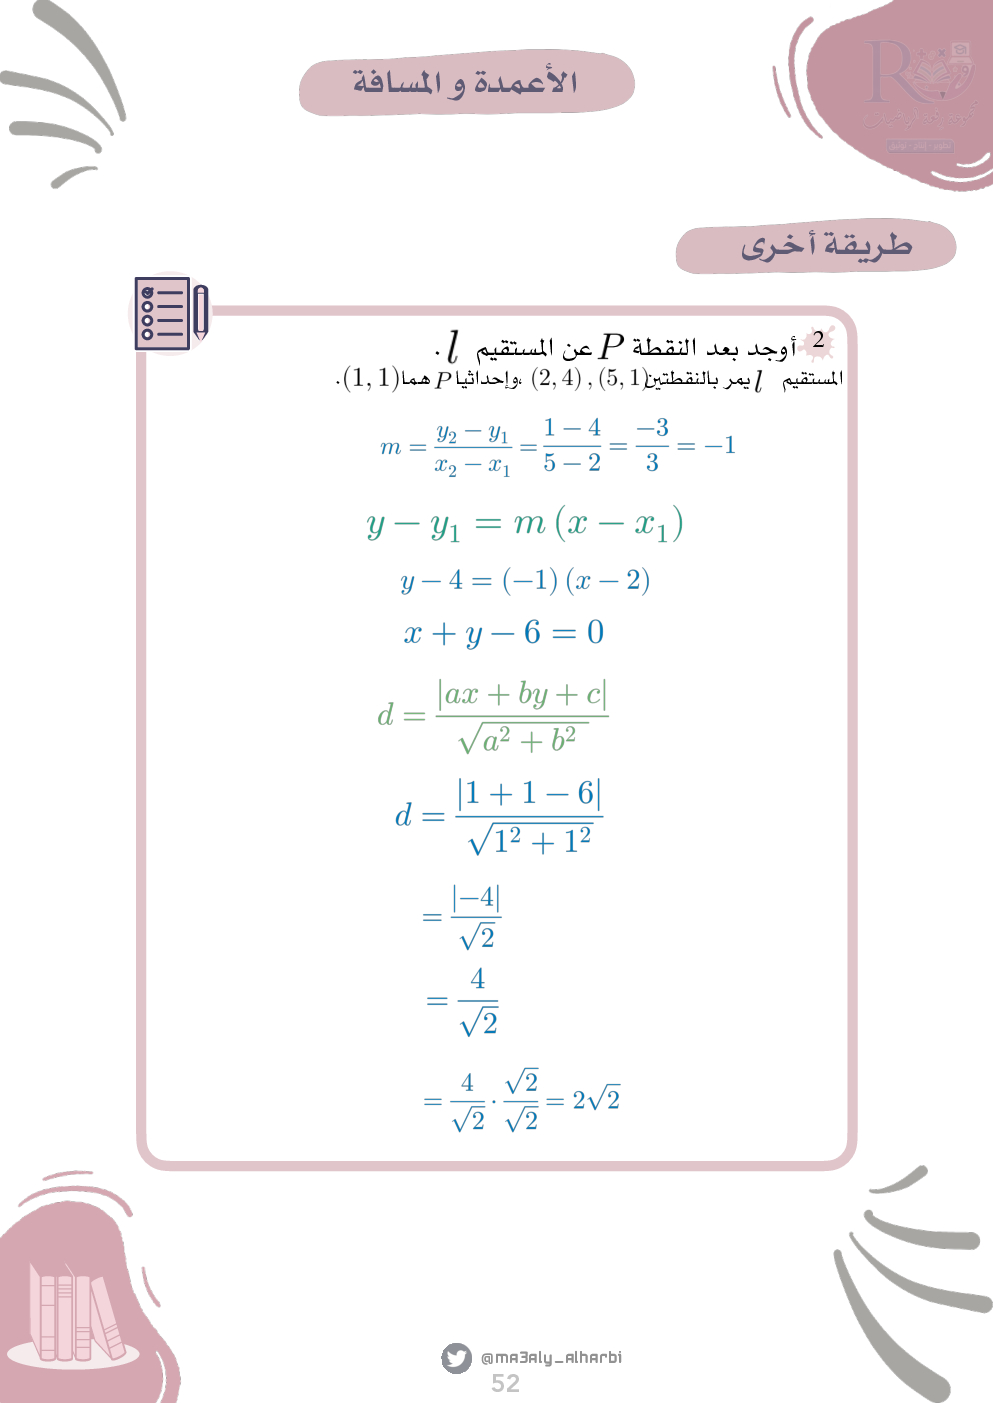 الأعمدة و المسافة
طريقة أخرى
2 أوجد بعد النقطة P عن المستقيم l .
المستقيم l يمر بالنقطتين (5, 1) , (2, 4) ،وإحداثيا P هما (1, 1).
m = \frac{y_2 − y_1}{x_2 − x_1} = \frac{1 − 4}{5 − 2} = \frac{−3}{3} = −1
y − y_1 = m (x − x_1)
y − 4 = (−1) (x − 2)
x + y − 6 = 0
d = \frac{|ax + by + c|}{\sqrt{a^2 + b^2}}
d = \frac{|1 + 1 − 6|}{\sqrt{1^2 + 1^2}}
= \frac{|−4|}{\sqrt{2}}
= \frac{4}{\sqrt{2}}
= \frac{4}{\sqrt{2}} · \frac{\sqrt{2}}{\sqrt{2}} = 2\sqrt{2}
@ma3aly_alharbi
52